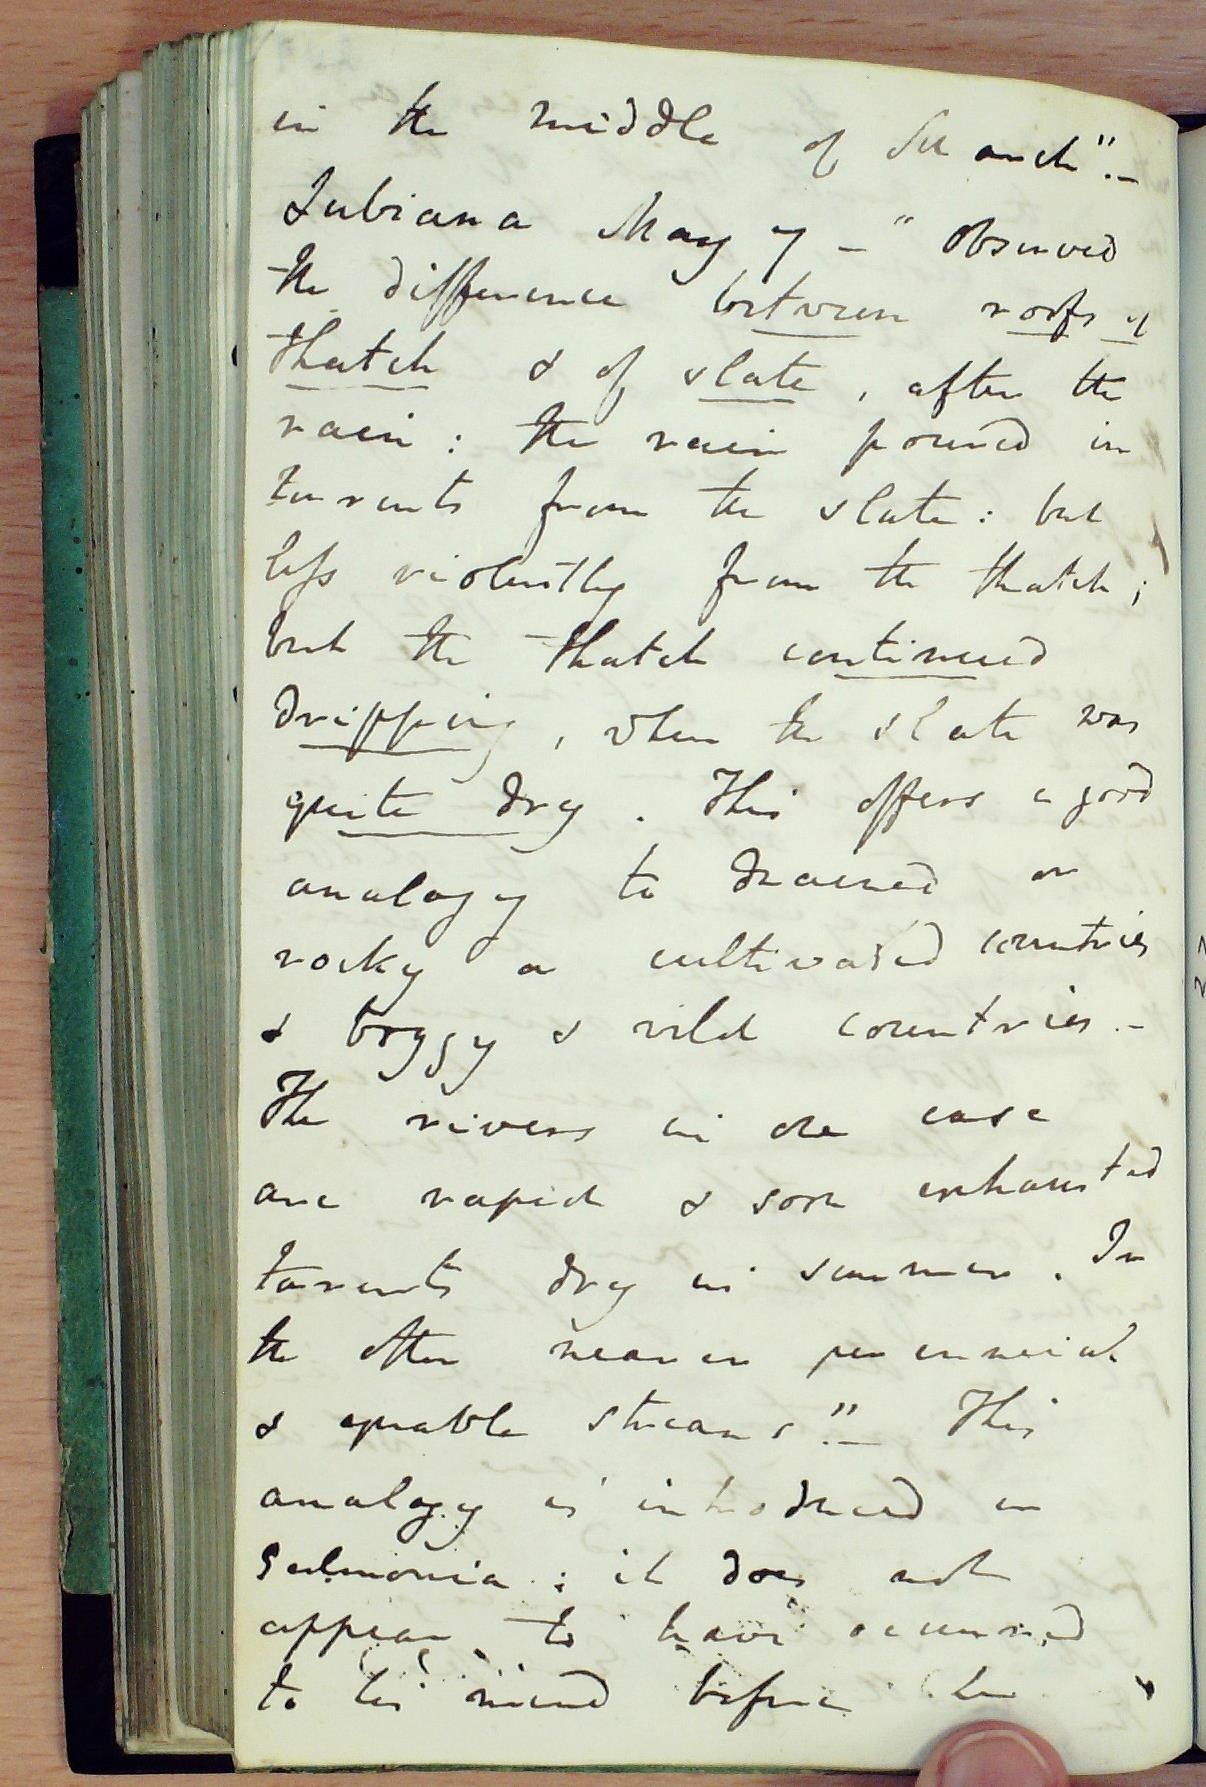 in the middle of March".—
Lubiana May 7 — "Observed
the difference between roofs of
thatch & of slate, after the
rain: the rain poured in
torrents from the slate: but
less violently from the thatch;
but the thatch continued
dripping, when the slate was
quite dry. This offers a good
analogy to drained or
rocky or cultivated countries
& boggy & wild countries.—
The rivers in one case
are rapid & soon exhausted
torrents dry in summer. In
the other near on perennial
& equable streams".— This
analogy is introduced in
Salmonia: it does not
appear to have occurred
to his mind before he